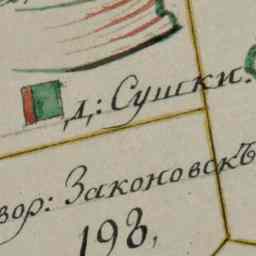 д,: Сушки.
вор: Законовскъ
198,